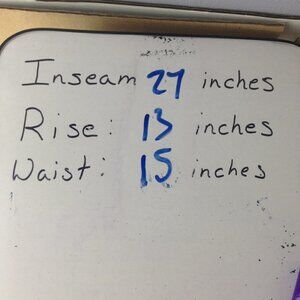 Inseam 27 inches
Rise: 13 inches
Waist: 15 inches